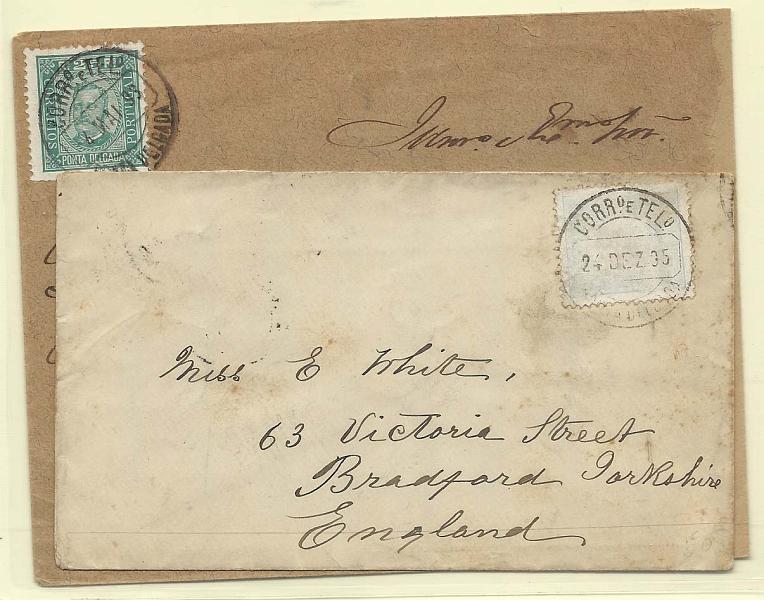 CORRO E TELO
CORREIOS
PORTUGAL
PONTA DELGADA
CORRO E TELO
24 DEZ 95
Miss E White,
63 Victoria Street
Bradford Yorkshire
England